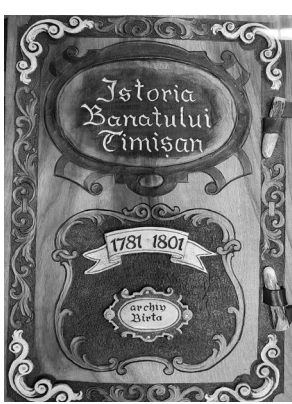 Istoria
Banatului
Timișan
1781 1801
archiv
Birta